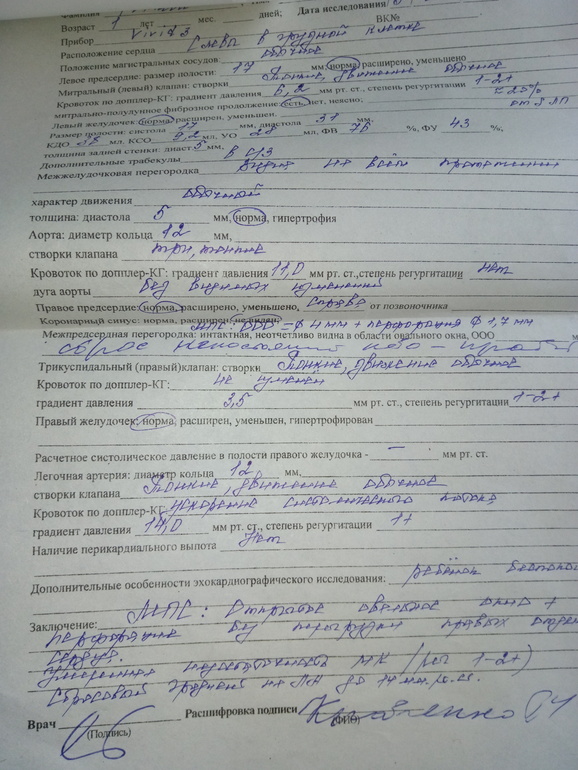 Фамилия
Возраст 1 лет мес. дней; Дата исследования
Прибор Vivid 3 ВК№
Расположение сердца Слева в грудной клетке
Положение магистральных сосудов: обычное
Левое предсердие: размер полости: 17 мм, норма, расширено, уменьшено
Митральный (левый) клапан: створки Тонкие, движение обычное
Кровоток по допплер-КГ: градиент давления 6,2 мм рт. ст., степень регургитации 1-2+
митрально-полулунное фиброзное продолжение: есть, нет, неясно; 25% от S ЛП
Левый желудочек: норма, расширен, уменьшен.
Размер полости: систола 17 мм, диастола 31 мм,
КДО 38 мл. КСО 9,2 мл, УО 28 мл, ФВ 76 %, ФУ 43 %,
толщина задней стенки: диаст. 5 мм,
Дополнительные трабекулы в с/3
Межжелудочковая перегородка видна на всём протяжении
характер движения обычный
толщина: диастола 5 мм, норма, гипертрофия
Аорта: диаметр кольца 12 мм,
створки клапана три, тонкие
Кровоток по допплер-КГ: градиент давления 11,0 мм рт. ст., степень регургитации нет
дуга аорты без видимых изменений
Правое предсердие: норма, расширено, уменьшено, справа от позвоночника
Коронарный синус: норма, расширен, не виден;
МПП: ООО = Ф 4 мм + перфорация Ф 1,7 мм
Межпредсердная перегородка: интактная, неотчетливо видна в области овального окна, ООО м
сброс непостоянный лево - правый
Трикуспидальный (правый)клапан: створки Тонкие, движение обычное
Кровоток по допплер-КГ: не изменён
градиент давления 3,5 мм рт. ст., степень регургитации 1-2+
Правый желудочек: норма, расширен, уменьшен, гипертрофирован
Расчетное систолическое давление в полости правого желудочка - – мм рт. ст.
Легочная артерия: диаметр кольца 12 мм,
створки клапана Тонкие, движение обычное
Кровоток по допплер-КГ ускорение систолического потока
градиент давления 14,0 мм рт. ст., степень регургитации 1+
Наличие перикардиального выпота Нет
Дополнительные особенности эхокардиографического исследования: ребёнок беспоко
Заключение: МПП: Открытое овальное окно +
перфорация без перегрузки правых отдел
сердца.
Умеренная недостаточность МК (рег 1-2+)
градиент на ЛА до 14 мм.рт.ст.
Врач Расшифровка подписи
(Подпись) (ФИО)